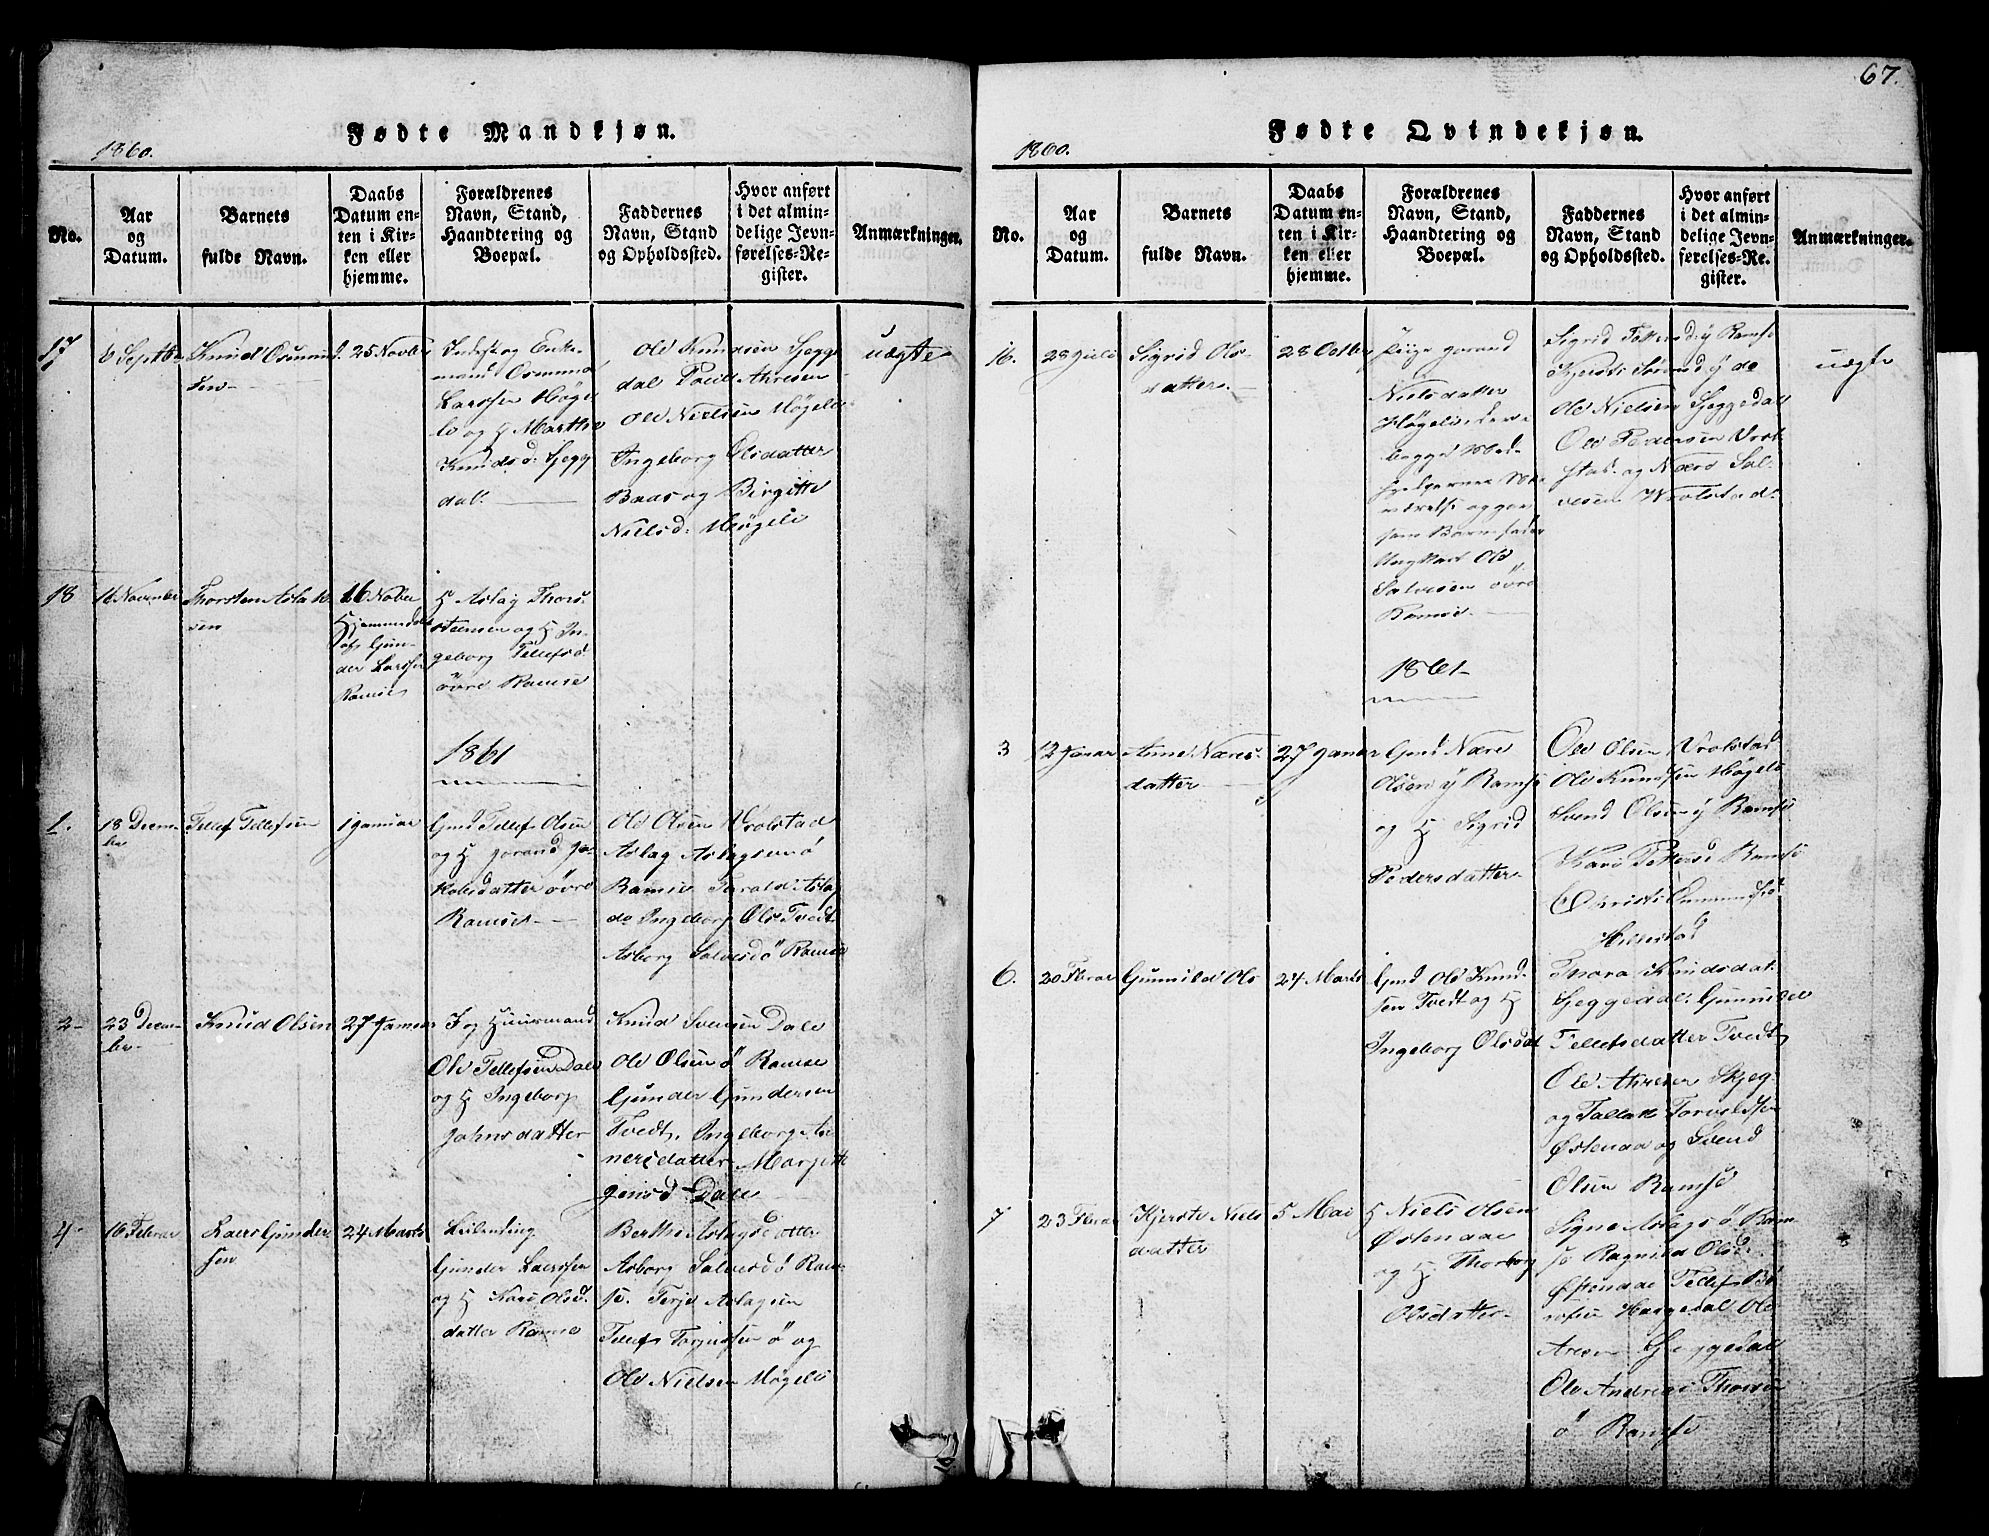 67.
Fødte Mandkjøn.
1860.
No.
Aar
og
Datum.
Barnets
fulde Navn.
Daabs
Datum en-
ten i Kir-
ken eller
hjemme.
Forældrenes
Navn, Stand,
Haandtering og
Boepæl.
Faddernes
Navn, Stand
og Opholdssted.
Hvor anført
i det almin-
delige Jevn-
førelses-Re-
gister.
Anmærkninger.
17
6 Septbr
Knud Osmund
sen
25 Novbr
og Enke-
mand Osmund
Larssen Høge
li og H Marthe
Knudsd: Segge
dal.
Ole Knudsen Segge
dal Poul Andresen
Ole Nielsen Høgeli
Ingeborg Olsdatter
Baas og Birgitte
Nielsd: Høgeli
uægte
18
16 November
Thorsten Aslak
sen
16 Nobr
Hjemmedøbt
af Gun-
der Larssen
Ramse
H Aslag Thors-
teensen og H In-
geborg Tellefsd
øvre Ramse
1861
1.
18 Decem-
ber
Tellef Tellefsen
1 Januar
Gmd Tellef Olsen
og H Jorand Ja-
kobsdatter øvre
Ramse
Ole Olsen Vrolstad
Aslag Aslagsen ø
Ramse Tarald Aslag
do Ingeborg Ols Tvedt
Asborg Salvesd ø Ramse
2
23 Decem-
ber
Knud Olsen
27 Januar
I og Huusmand
Ole Tellefsen Dale
og H Ingeborg
Johnsdatter
Knud Svensen Dale
Ole Olsen ø Ramse
Gunder Gundersen
Tvedt, Ingeborg As-
nersdatter Margitt
Jensd Dale
4
16 Februar
Laers Gunder
sen
24 Marts
Gunder Laerssen
og H Kari Olsd.
datter Ramse
Berthe Aslagsdatter
Asborg Salvesd ø Ram-
se. Terje Aslagsen
Tellef Torjussen ø og
Ole Nielsen Høgeli
Fødte Qvindekjøn.
1860.
No.
Aar
og
Datum.
Barnets
fulde Navn.
Daabs
Datum en-
ten i Kir-
ken eller
hjemme.
Forældrenes
Navn, Stand,
Haandtering og
Boepæl.
Faddernes
Navn, Stand
og Opholdssted.
Hvor anført
i det almin-
delige Jevn-
førelses-Re-
gister.
Anmærkninger.
16.
28 Juli
Sigrid Ols-
datter
28 Octbr
Pige Jorand
Nielsdatter
Høgeli
som Barnefader
Ungkarl Ole
Salvesen øvre
Ramse
Sigrid y Ramse
y do
Ole Nielsen Seggedal
Ole Pedersen Vrol-
stad og Næri Sal-
vesen Wrolstad
uægte
1861
3
12 Januar
Anne Næres-
datter
27 Januar
Gmd Næri
Olsen y Ramse
og H Sigrid
Pedersdatter
Ole Olsen Vrolstad
Ole Knudsen Høgeli
Svend Olsen y Ramse
Kari Ramse
Christi
Hillestad
6.
20 Februar
Gunnild Ols
24 Marts
Gmd Ole Knud-
sen Tvedt og H
Ingeborg Olsdat
Thora Knudsdat.
Seggedal. Gunnild
Tellefsdatter Tvedt
Ole Skjeg
og Tallak
Østenaa og Svend
Olsen Ramse
7
23 Februar
Kjerste Niels
datter
5 Mai
H Niels Olsen
Østenaa
og H Thorborg
Olsdatter
Signe Aslags ø Ram-
se Ragnild Olsd
Østenaa Tellef
Ole
Aresen Seggedal
Ole
ø Ramse